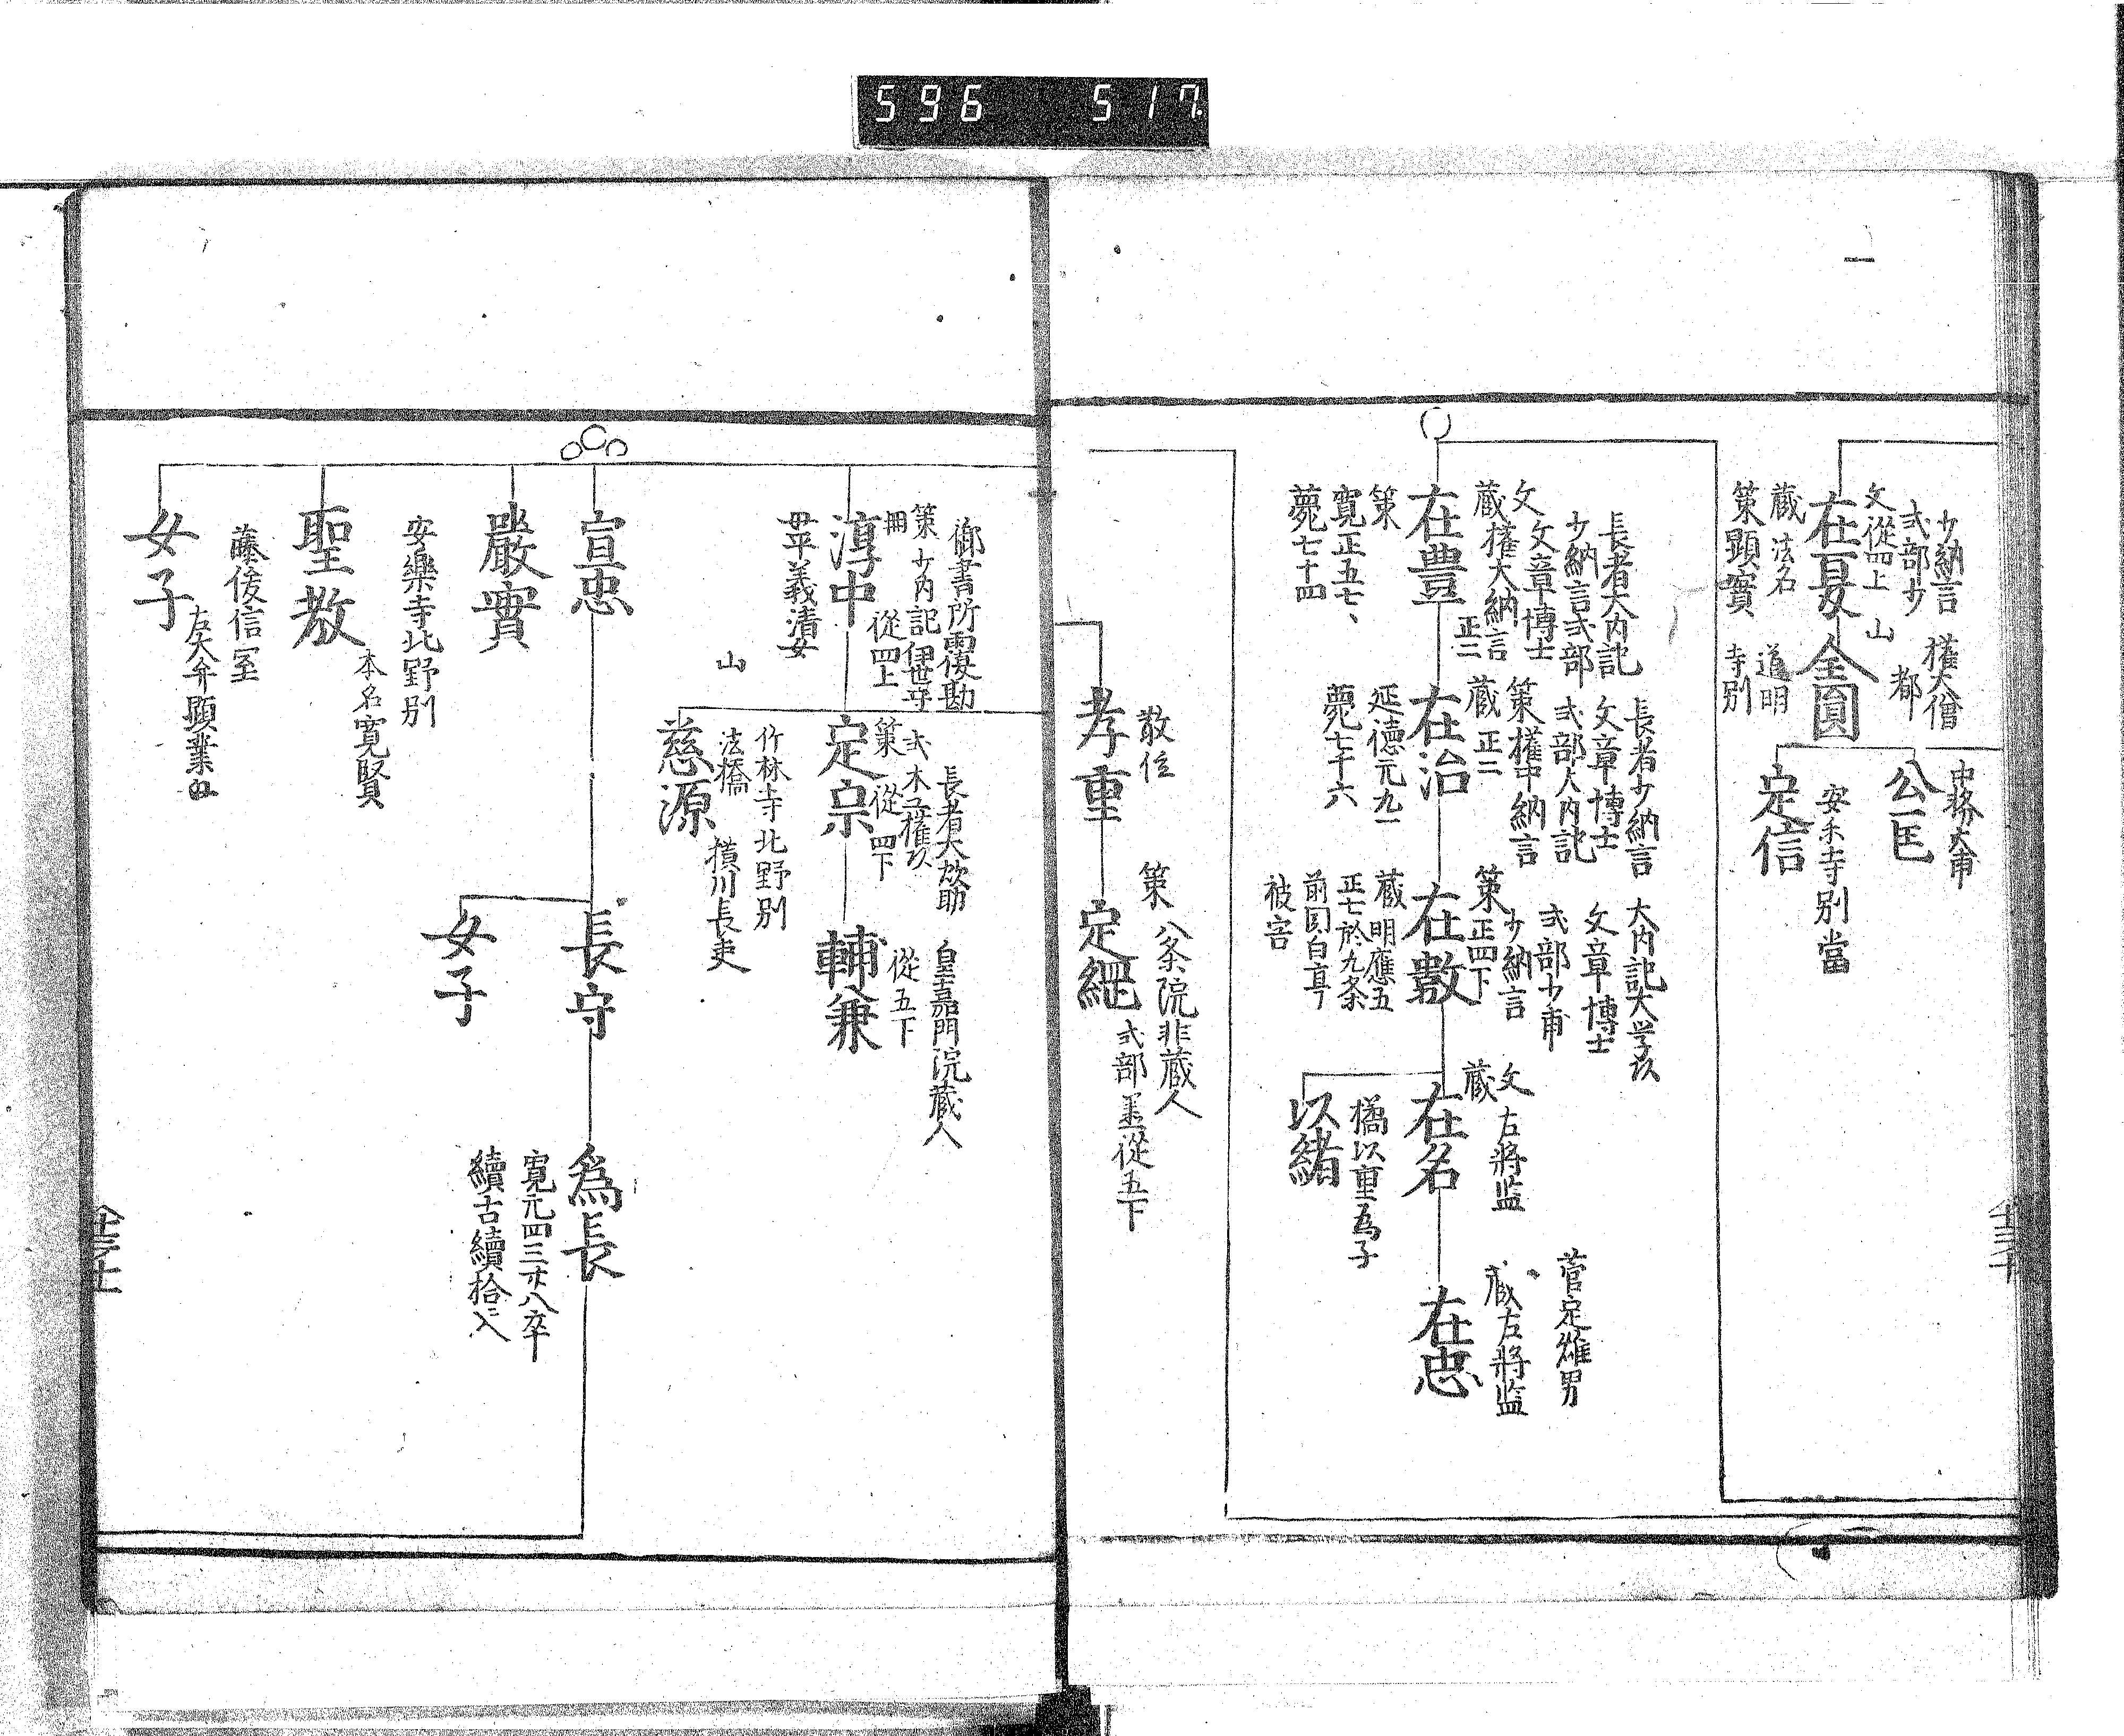 596 517
少納言
式部少
文從四上
在夏
蔵 法名
策 顕實
權大僧
都
山
全圓
道明
寺別
中務大甫
公匡
安禾寺別當
定信
長者大内記
少納言式部
文章博士
文
蔵權大納言
正二
在豊
策
寛正五七、
薨七十四
長者少納言
文章博士
式部人内記
策權中納言
蔵 正二
在治
延德元九一
薨七十六
大内記大学
文章博士
式部少甫
少納言
策正四下
在數
蔵 明應五
正七於九条
前関白亭
被害
文
蔵 右將监
在名
橘以重為子
以緒
菅定雄男
蔵右將监
在忠
散位
孝重
策 八条院非蔵人
定綱
式部 從五下
御書所覆勘
策 少内記伊世守
從四上
淳中
母平義清女
長者大
式 木工權
策 從四下
定宗
皇嘉門院蔵人
從五下
輔兼
竹林寺北野別
法橋 横川長吏
山
慈源
宣忠
長守
為長
寛元四三廿八卒
續古續拾入
女子
嚴實
安樂寺北野別
聖教
本名寛賢
藤俊信室
女子
左大弁顕業母